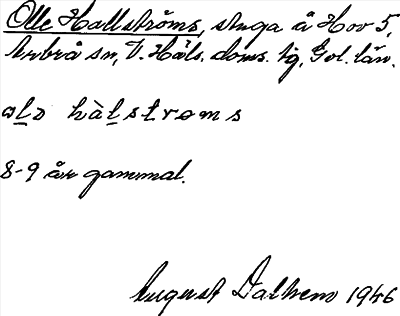 Olle Hallströms, stuga å Hov 5,
Arbrå sn, V. Häls. doms. tg, Gvl. län.
olɔ hàlstrɷms
8-9 år gammal.
August Dalhem 1946